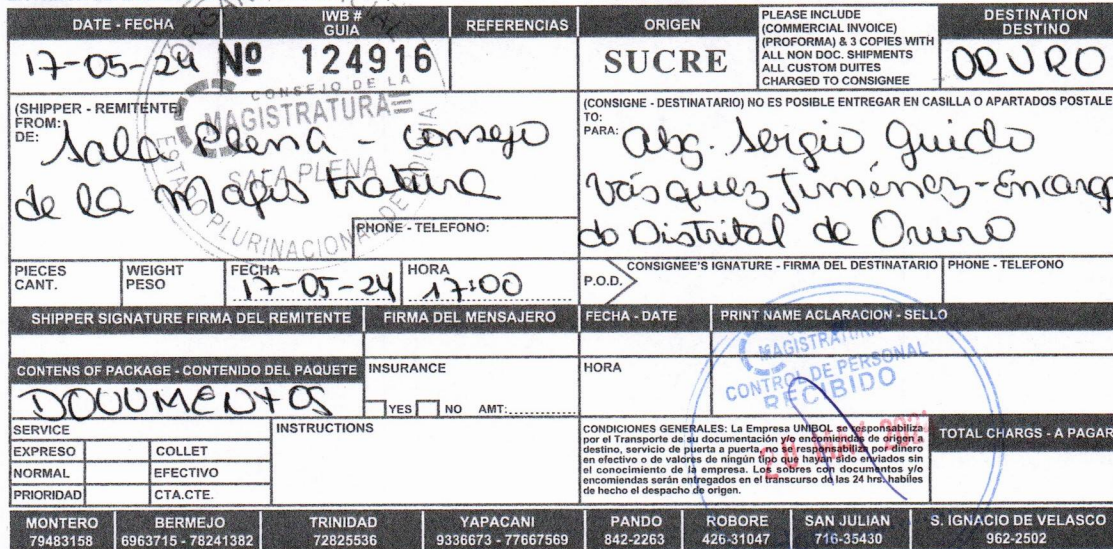 DATE - FECHA
17-05-24
IWB #
GUIA
Nº 124916
REFERENCIAS
ORIGEN
SUCRE
PLEASE INCLUDE
(COMMERCIAL INVOICE)
(PROFORMA) & 3 COPIES WITH
ALL NON DOC. SHIPMENTS
ALL CUSTOM DUITES
CHARGED TO CONSIGNEE
DESTINATION
DESTINO
ORURO
CONSEJO DE LA
MAGISTRATURA
SALA PLENA
ESTADO PLURINACIONAL DE BOLIVIA
(SHIPPER - REMITENTE)
FROM:
DE: Sala Plena - Consejo
de la Magistratura
PHONE - TELEFONO:
(CONSIGNE - DESTINATARIO) NO ES POSIBLE ENTREGAR EN CASILLA O APARTADOS POSTALE
TO:
PARA: Abg. Sergio Guido
Vásquez Jiménez - Encarga
do Distrital de Oruro
PIECES
CANT.
WEIGHT
PESO
FECHA
17-05-24
HORA
17:00
P.O.D.
CONSIGNEE'S IGNATURE - FIRMA DEL DESTINATARIO
PHONE - TELEFONO
SHIPPER SIGNATURE FIRMA DEL REMITENTE
FIRMA DEL MENSAJERO
FECHA - DATE
PRINT NAME ACLARACION - SELLO
MAGISTRATURA
CONTROL DE PERSONAL
RECIBIDO
CONTENS OF PACKAGE - CONTENIDO DEL PAQUETE
DOCUMENTOS
INSURANCE
YES NO AMT:
HORA
SERVICE
EXPRESO COLLET
NORMAL EFECTIVO
PRIORIDAD CTA.CTE.
INSTRUCTIONS
CONDICIONES GENERALES: La Empresa UNIBOL se responsabiliza
por el Transporte de su documentación y/o encomiendas de origen a
destino, servicio de puerta a puerta, no se responsabiliza por dinero
en efectivo o de valores de ningún tipo que hayan sido enviados sin
el conocimiento de la empresa. Los sobres con documentos y/o
encomiendas serán entregados en el transcurso de las 24 hrs. habiles
de hecho el despacho de origen.
TOTAL CHARGS - A PAGAR
MONTERO
79483158
BERMEJO
6963715 - 78241382
TRINIDAD
72825536
YAPACANI
9336673 - 77667569
PANDO
842-2263
ROBORE
426-31047
SAN JULIAN
716-35430
S. IGNACIO DE VELASCO
962-2502